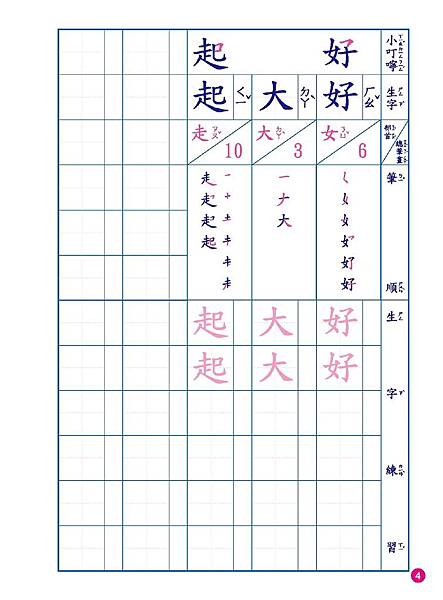 小叮嚀
好 起
生字
好 ㄏㄠˇ 大 ㄉㄚˋ 起 ㄑㄧˇ
部首 總筆畫
女 ㄋㄩˇ 6
大 ㄉㄚˋ 3
走 ㄗㄡˇ 10
筆順
好
一ナ大
一十土
走起起起
生字練習
好 大 起
好 大 起
4